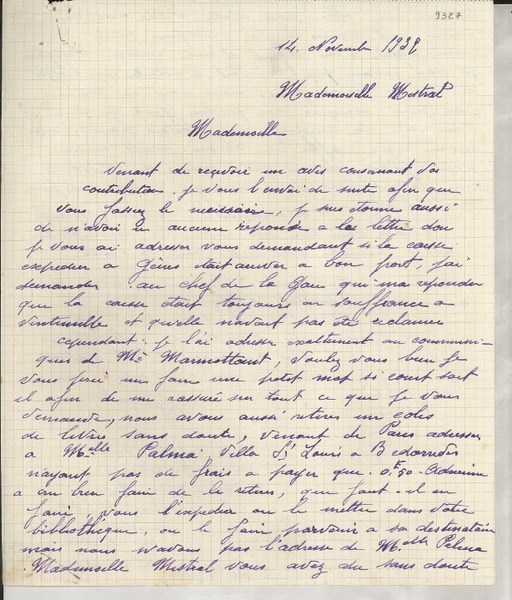 9327
14. Novembre 1939
Mademoiselle Mistral
Mademoiselle
Venant de reçevoir un avis consernant vos
contribution. je vous l'envoi de suite afin que
vous fassiez le necessaire, je suis étonné aussi
de n'avoir eu aucune reponse a la lettre dou
je vous ai adresser vous demandant si la caisse
expedier a Gênes etait arriver a bon port, j'ai
demander au chef de la Gare qui ma repondu
que la caisse etait toujours en souffrance a
Vintimille et qu'elle n'avait pas été reclamer
cependant je l'ai adresser exactement au
que de Mr Marmottant, voulez vous bien je
vous prie me faire une petit mot si court soit
il afin de me rassuré sur tout ce que je vous
demande, nous avons aussi retirer un colis
de livres sans doute, venant de Paris adresser
a Melle Palma Villa St Louis a Bedarrides
n'ayant pas de frais a payer que 0F50
a cru bien faire de le retirer, que faut-il en
faire, vous l'expedier ou le mettre dans votre
bibliothèque, ou le faire parvenir a sa destinataire
mais nous n'avons pas l'adresse de Melle Palma
Mademoiselle Mistral vous avez du sans doute